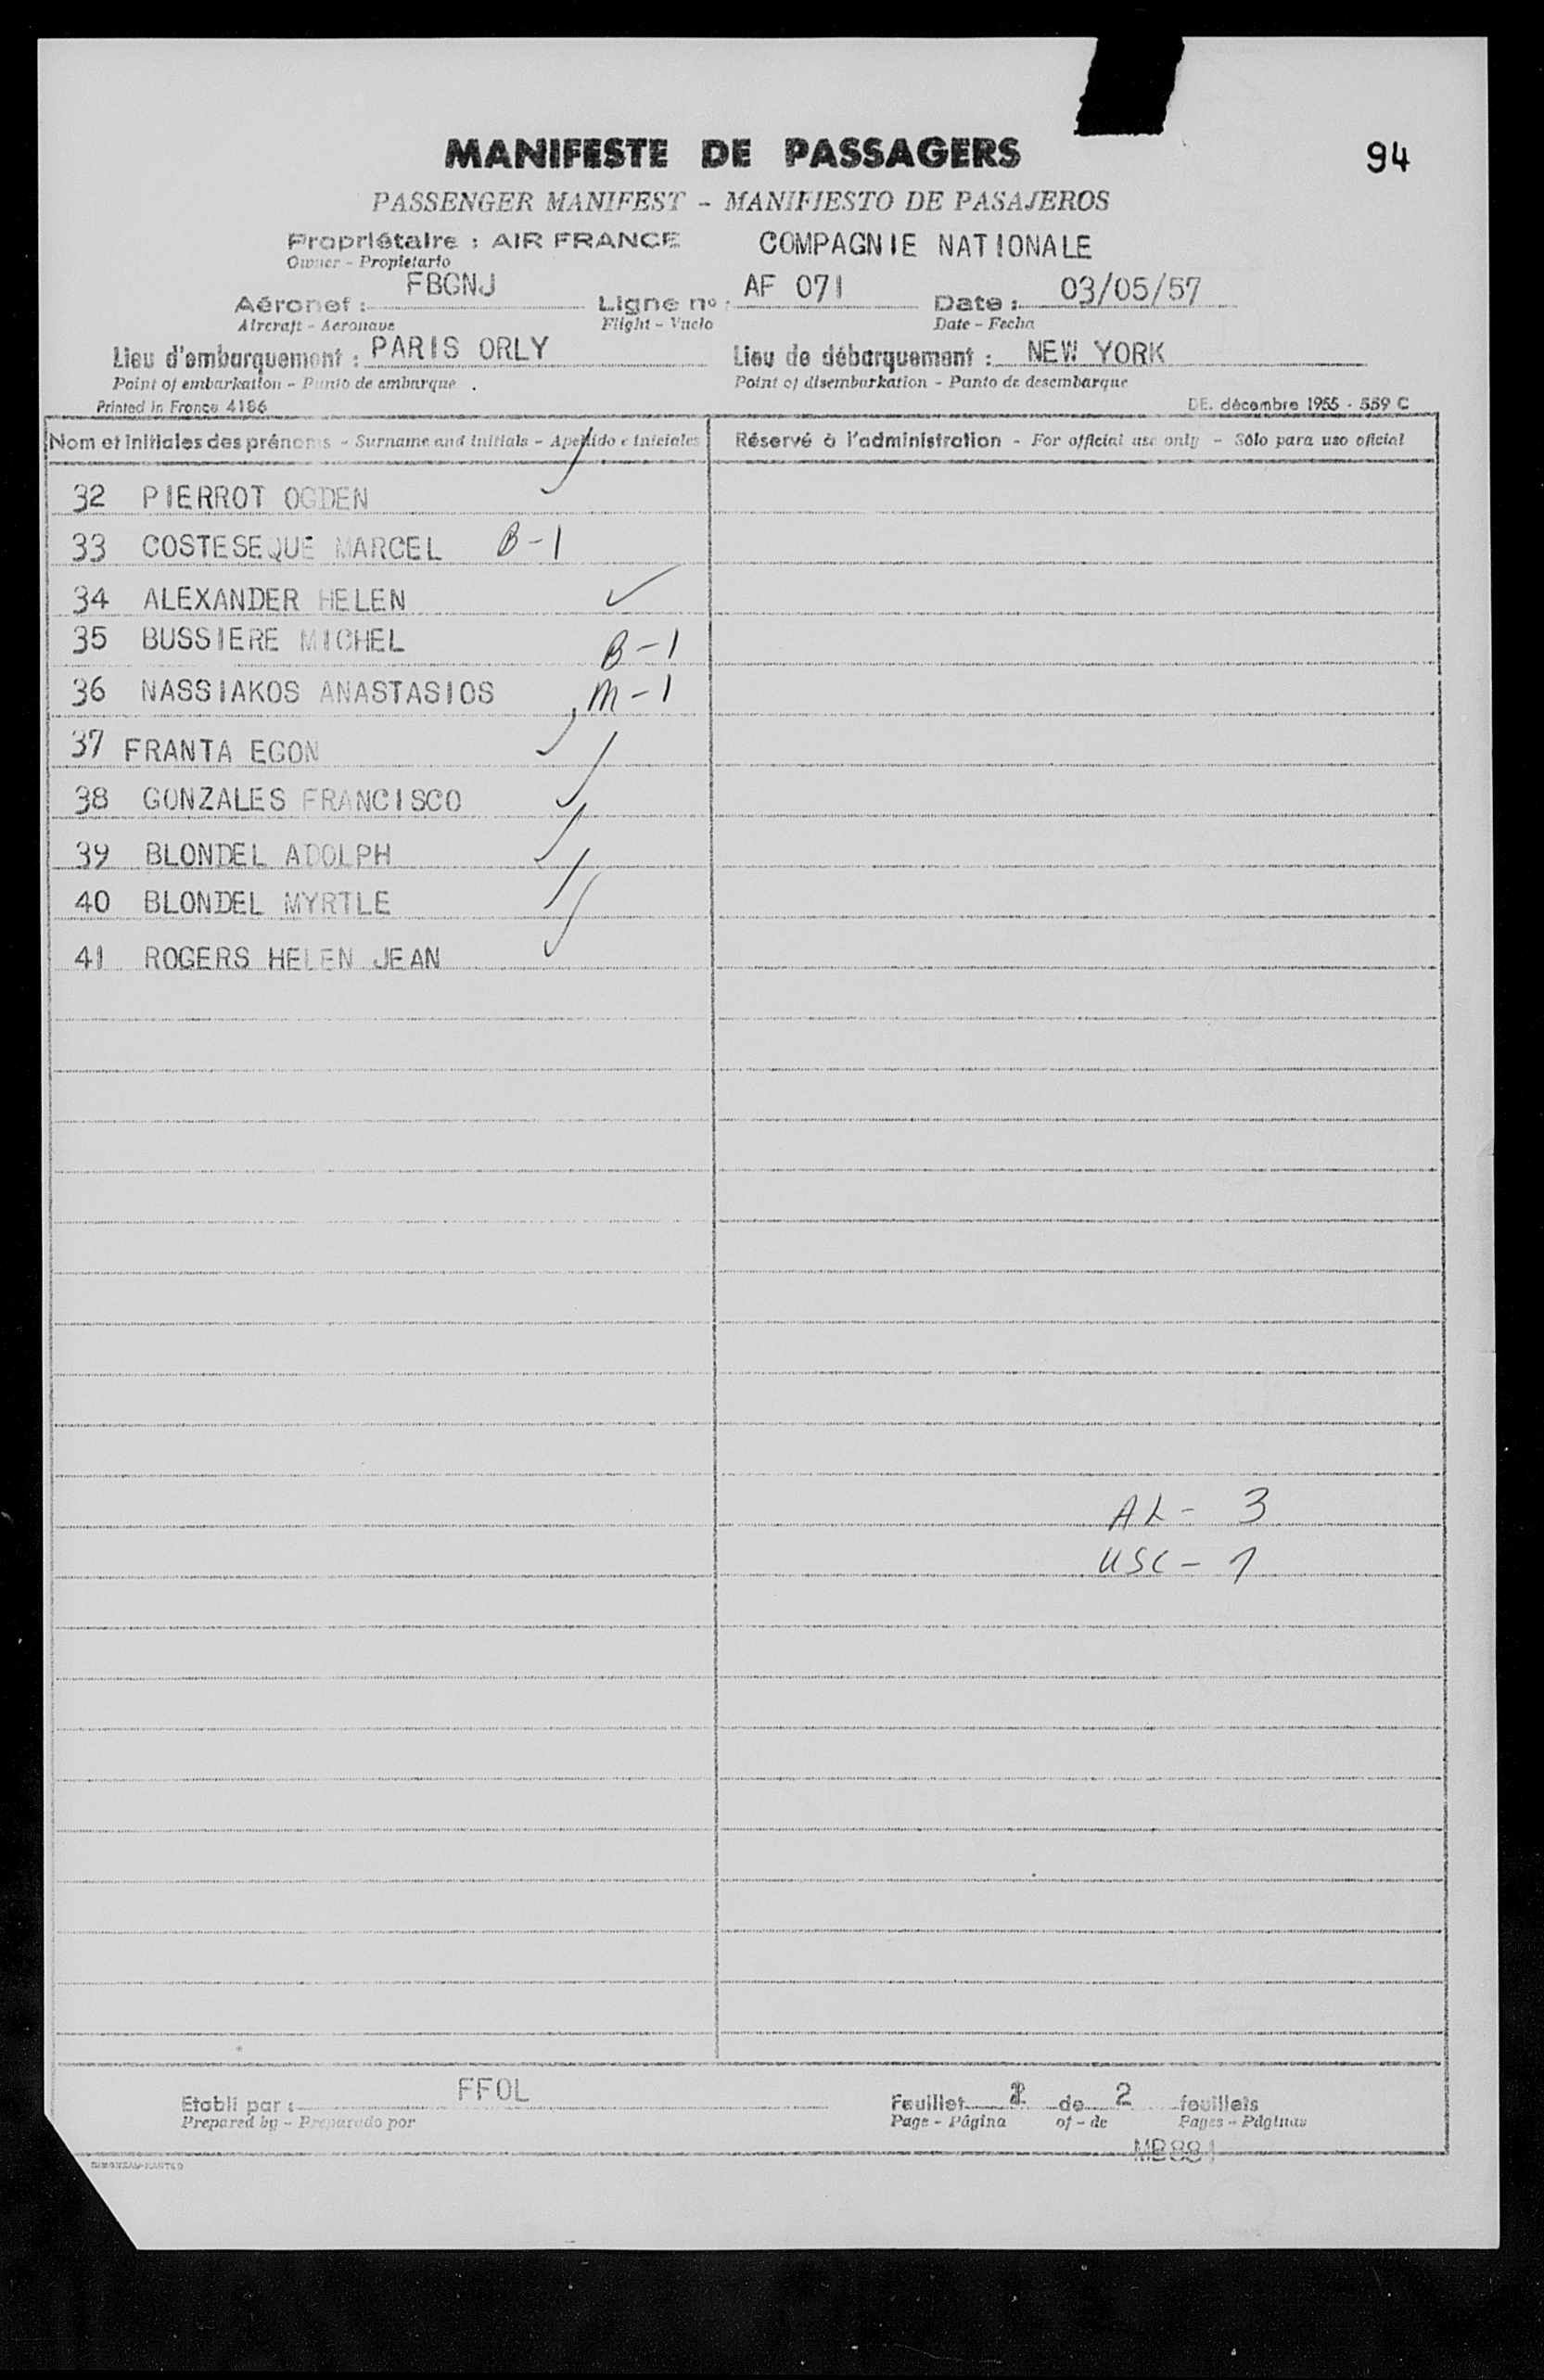 MANIFESTE DE PASSAGERS
94
PASSENGER MANIFEST - MANIFIESTO DE PASAJEROS
Propriétaire : AIR FRANCE COMPAGNIE NATIONALE
Owner - Propietario
Aéronef : FBGNJ Ligne nº : AF 071 Date : 03/05/57
Aircraft - Aeronave Flight - Vuelo Date - Fecha
Lieu d'embarquement : PARIS ORLY Lieu de débarquement : NEW YORK
Point of embarkation - Punto de embarque Point of disembarkation - Punto de desembarque
Printed in France 4186 DE. décembre 1955 - 559 C
Nom et initiales des prénoms - Surname and initials - Apellido e iniciales Réservé à l'administration - For official use only - Sólo para uso oficial
32 PIERROT OGDEN
33 COSTESEQUE MARCEL B-1
34 ALEXANDER HELEN ✓
35 BUSSIERE MICHEL B-1
36 NASSIAKOS ANASTASIOS M-1
37 FRANTA EGON ✓
38 GONZALES FRANCISCO ✓
39 BLONDEL ADOLPH ✓
40 BLONDEL MYRTLE ✓
41 ROGERS HELEN JEAN ✓
AL - 3
USC - 1
Etabli par : FFOL Feuillet de 2 feuillets
Prepared by - Preparado por Page - Página of - de Pages - Páginas